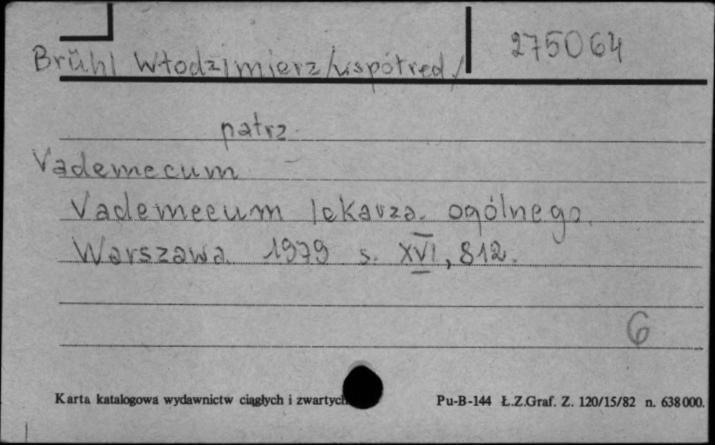 Brühl Włodzimierz /współred/ 275064
patrz
Vademecum
Vademecum lekarza ogólnego.
Warszawa 1979 s. XVI, 812.
6
Karta katalogowa wydawnictw ciągłych i zwartych Pu-B-144 Ł.Z.Graf. Z. 120/15/82 n. 638000.